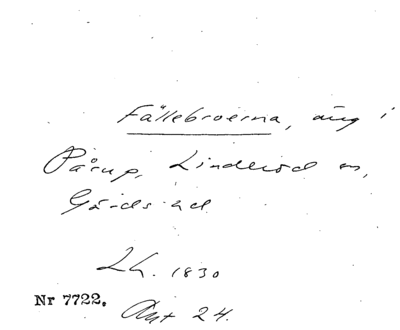 Fällebroerna, äng i
Pårup, Linderöd sn,
Gärds hd
Lh. 1830
Nr 7722. Akt 24.